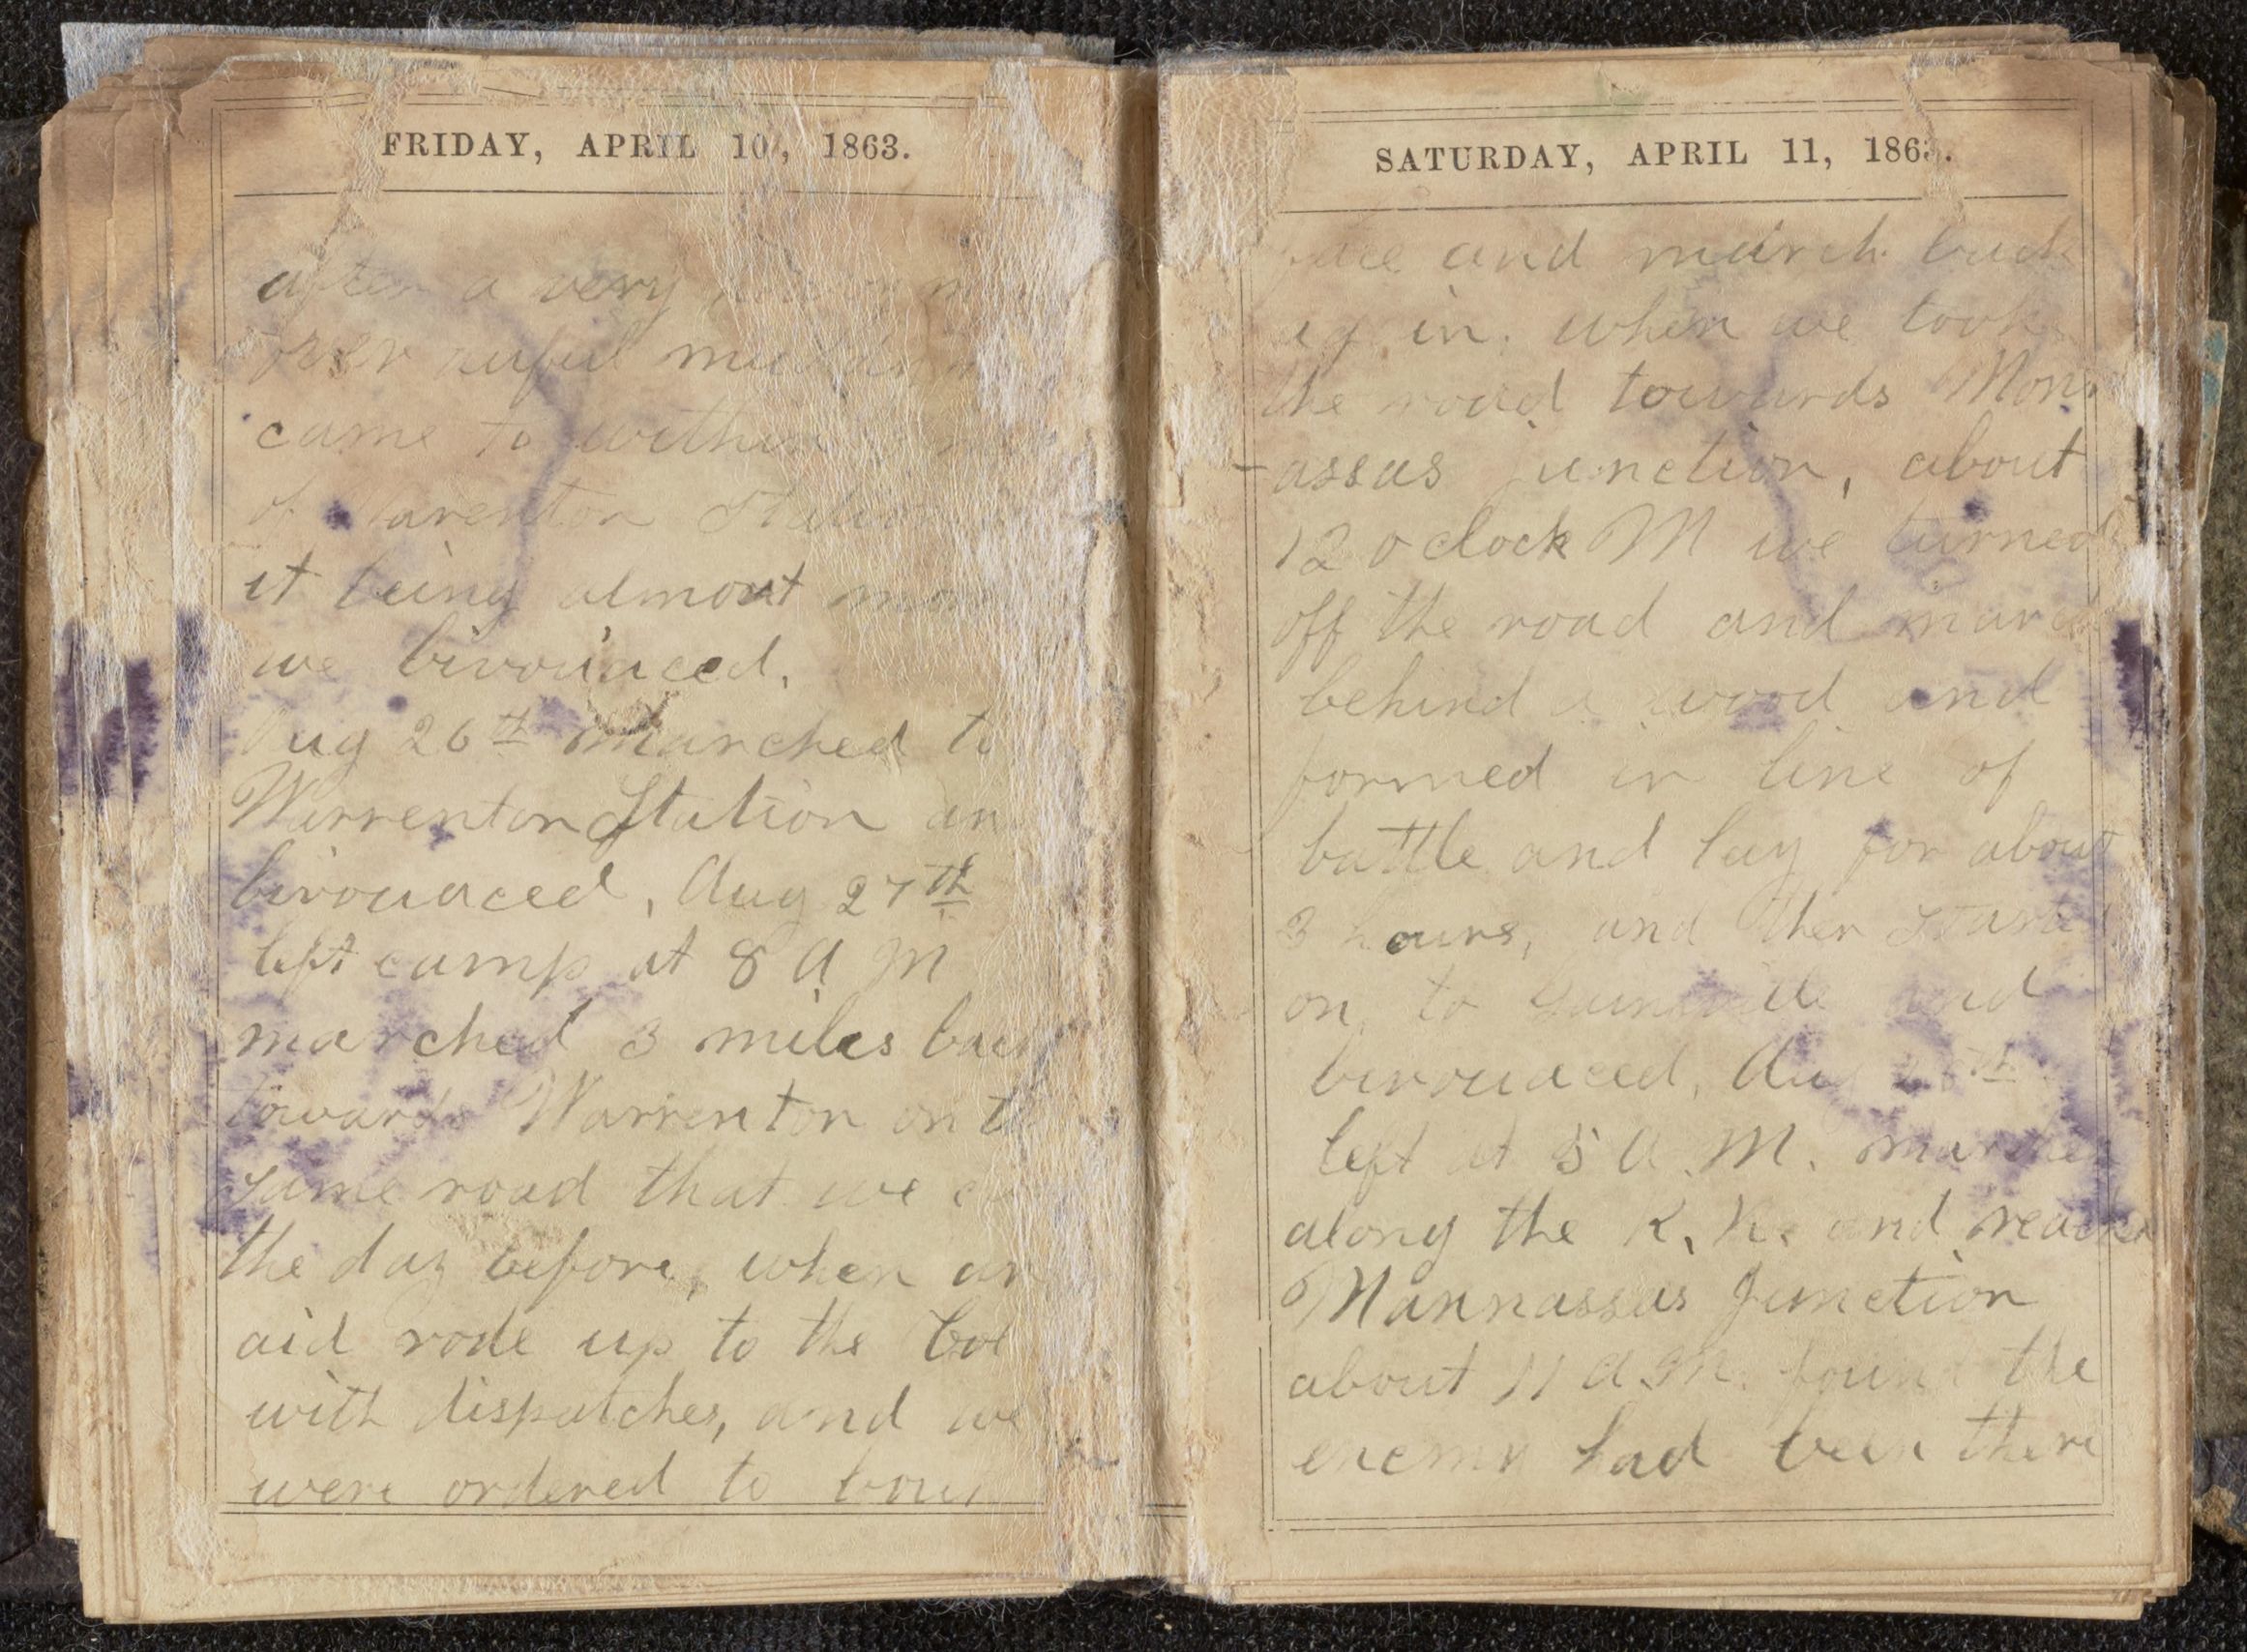 FRIDAY, APRIL 10, 1863.
after a very
over awful
came to within
of Warenton Station
it being almost
we bivouaced.
Aug 26th marched to
Warrenton Station an
bivouaced, Aug 27th
left camp at 8 A M
marched 3 miles back
towards Warrenton on th
same road that we
the day before, when an
aid rode up to the Col
with dispatches, and we
were ordered to
SATURDAY, APRIL 11, 186.
face and march back
ag in. when we took
the road towards Mon
-assas junction, about
12 o clock M we turned
off the road and march
behind a wood and
formed in line of
battle and lay for about
3 hours, and then start
on to and
bivouaced, Aug th
left at 5 A. M. marched
along the R. R. and reach
Mannassas Junction
about 11 A.M. found the
enemy had been there